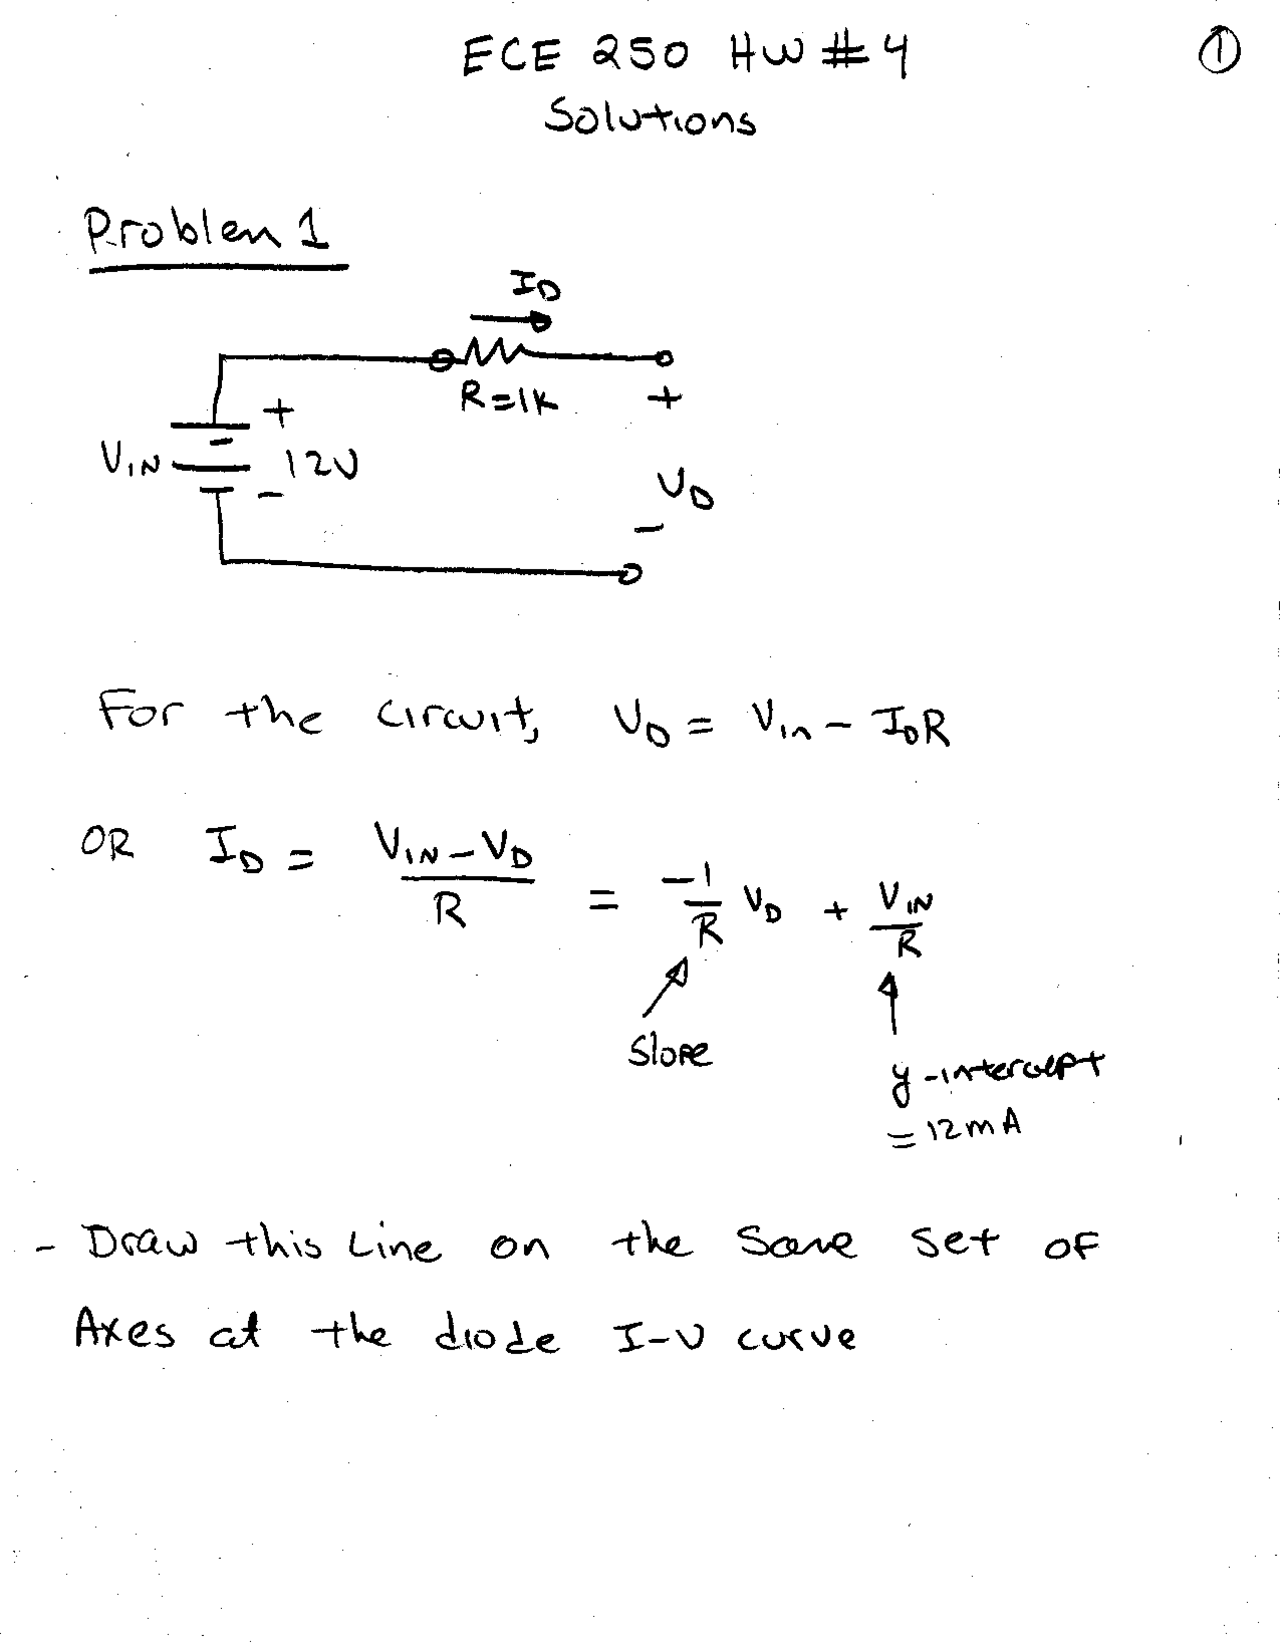 ECE 250 HW #4
①
Solutions
Problem 1
I_D
R=1K
+
+
V_IN
12V
-
V_D
-
For the circuit, V_D = V_in - I_D R
OR I_D = (V_IN - V_D)/R = -1/R V_D + V_IN/R
slope
y-intercept
= 12mA
- Draw this Line on the Same set of
Axes at the diode I-V curve